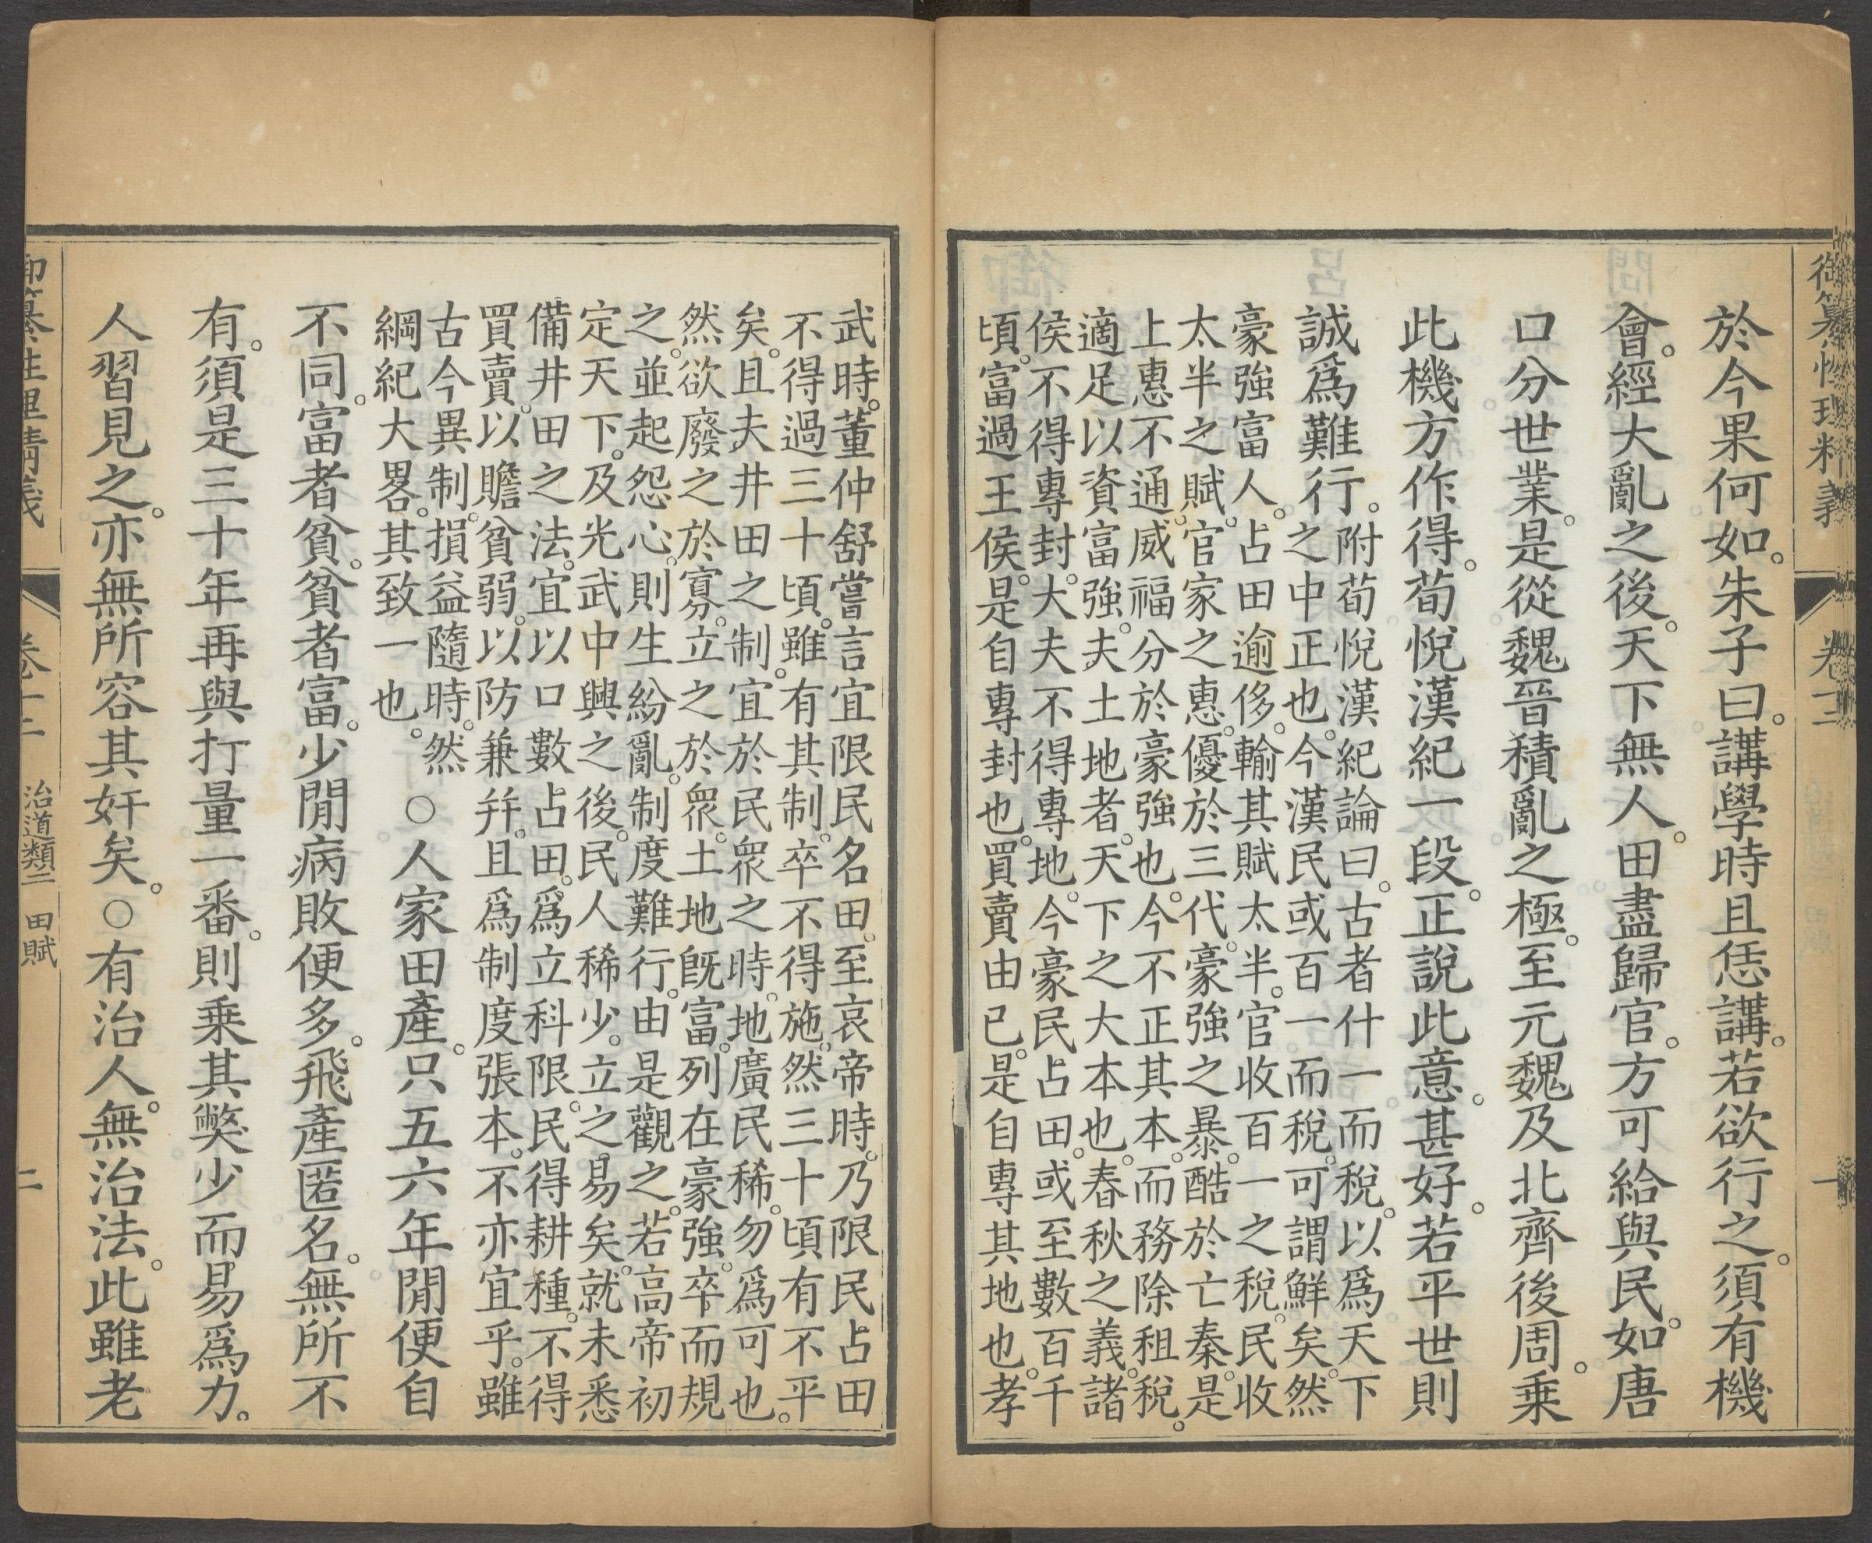 御纂性理精義
卷十二
一
於今果何如。朱子曰。講學時且恁講。若欲行之。須有機
會。經大亂之後。天下無人。田盡歸官。方可給與民。如唐
口分世業。是從魏晉積亂之極。至元魏及北齊後周。乗
此機方作得。荀悅漢紀一段。正說此意。甚好。若平世則
誠爲難行。
附荀悅漢紀論曰。古者什一而稅。以爲天下
之中正也。今漢民或百一而稅。可謂鮮矣。然
豪強富人。占田逾侈。輸其賦太半。官收百一之稅。民收
太半之賦。官家之惠。優於三代。豪強之暴。酷於亡秦。是
上惠不通。威福分於豪強也。今不正其本。而務除租稅。
適足以資富強。夫土地者。天下之大本也。春秋之義。諸
侯不得專封。大夫不得專地。今豪民占田。或至數百千
頃。富過王侯。是自專封也。買賣由已。是自專其地也。孝
武時。董仲舒嘗言宜限民名田。至哀帝時。乃限民占田
不得過三十頃。雖有其制。卒不得施。然三十頃有不平
矣。且夫井田之制。宜於民衆之時。地廣民稀。勿爲可也。
然欲廢之於寡。立之於衆。土地旣富。列在豪強。卒而規
之。並起怨心。則生紛亂。制度難行。由是觀之。若高帝初
定天下。及光武中興之後。民人稀少。立之易矣。就未悉
備井田之法。宜以口數占田。爲立科限。民得耕種。不得
買賣。以贍貧弱。以防兼并。且爲制度張本。不亦宜乎。雖
古今異制。損益隨時。然
綱紀大畧。其致一也。
○人家田產。只五六年閒便自
不同。富者貧。貧者富。少閒病敗便多。飛產匿名。無所不
有。須是三十年再與打量一番。則乗其獘少而易爲力。
人習見之。亦無所容其奸矣。○有治人。無治法。此雖老
御纂性理精義
卷十二
治道類二
田賦
二